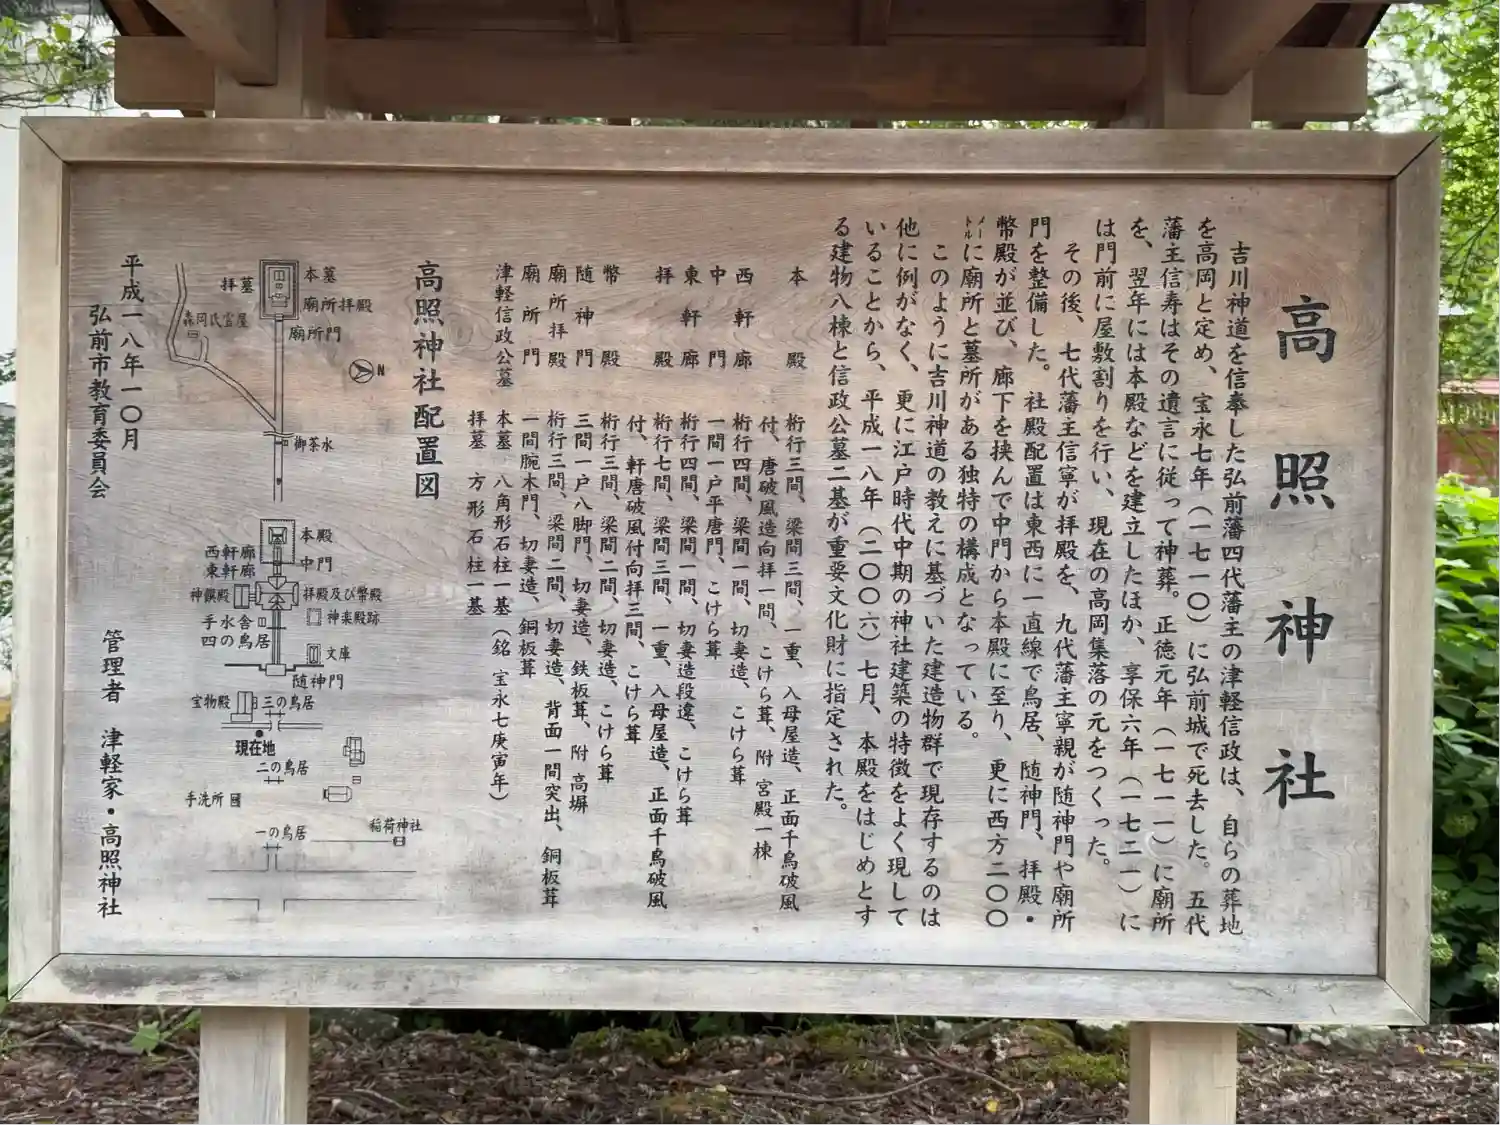 高照神社
吉川神道を信奉した弘前藩四代藩主の津軽信政は、自らの葬地
を高岡と定め、宝永七年（一七一〇）に弘前城で死去した。五代
藩主信寿はその遺言に従って神葬。正徳元年（一七一一）に廟所
を、翌年には本殿などを建立したほか、享保六年（一七二一）に
は門前に屋敷割りを行い、現在の高岡集落の元をつくった。
その後、七代藩主信寧が拝殿を、九代藩主寧親が随神門や廟所
門を整備した。社殿配置は東西に一直線で鳥居、随神門、拝殿・
幣殿が並び、廊下を挟んで中門から本殿に至り、更に西方二〇〇
メートルに廟所と墓所がある独特の構成となっている。
このように吉川神道の教えに基づいた建造物群で現存するのは
他に例がなく、更に江戸時代中期の神社建築の特徴をよく現して
いることから、平成一八年（二〇〇六）七月、本殿をはじめとす
る建物八棟と信政公墓二基が重要文化財に指定された。
本殿 桁行三間、梁間三間、一重、入母屋造、正面千鳥破風
付、唐破風造向拝一間、こけら葺、附 宮殿一棟
西軒廊 桁行四間、梁間一間、切妻造、こけら葺
中門 一間一戸平唐門、こけら葺
東軒廊 桁行四間、梁間一間、切妻造段違、こけら葺
拝殿 桁行七間、梁間三間、一重、入母屋造、正面千鳥破風
付、軒唐破風付向拝三間、こけら葺
幣殿 桁行三間、梁間二間、切妻造、こけら葺
随神門 三間一戸八脚門、切妻造、鉄板葺、附 高塀
廟所拝殿 桁行三間、梁間二間、切妻造、背面一間突出、銅板葺
廟所門 一間腕木門、切妻造、銅板葺
津軽信政公墓 本墓 八角形石柱一基（銘 宝永七庚寅年）
拝墓 方形石柱一基
高照神社配置図
N
本墓
拝墓
廟所拝殿
廟所門
御茶水
本殿
西軒廊
中門
東軒廊
神饌殿
拝殿及び幣殿
手水舎
神楽殿跡
四の鳥居
文庫
随神門
宝物殿
三の鳥居
現在地
二の鳥居
手洗所
一の鳥居
稲荷神社
平成一八年一〇月
弘前市教育委員会
管理者 津軽家・高照神社